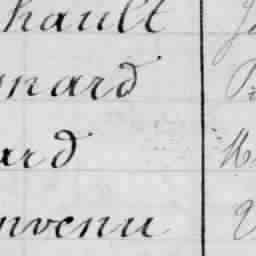 hault
gnard
ard
nvenu